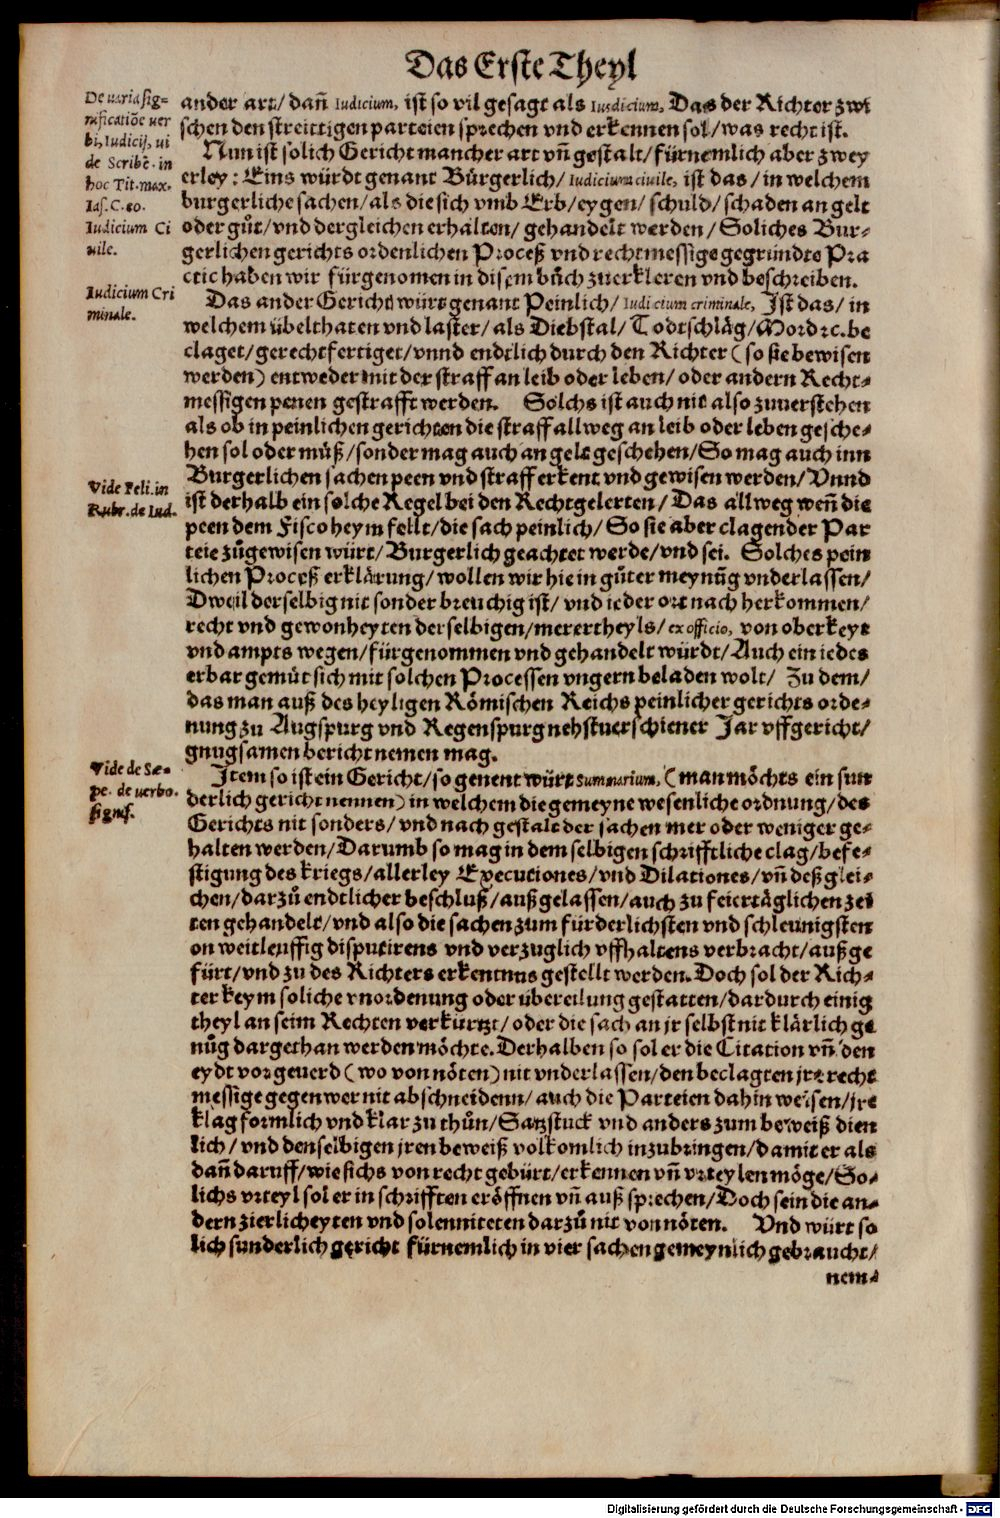 Das Erste Theyl
De uaria sig=
nificatiõe uer
bi, Iudicij, ui
de Scribẽ. in
hoc Tit. max.
Ias. C. eo.
Iudicium Ci
uile.
Iudicium Cri
minale.
Vide Feli. in
Rubr. de Iud.
Vide de Sæ=
pe. de uerbo.
signif.
ander art/ dañ Iudicium, ist so vil gesagt als Iusdicium, Das der Richter zwi
schen den streittigen parteien sprechen vnd erkennen sol/ was recht ist.
Nun ist solich Gericht mancher art vñ gestalt/ fürnemlich aber zwey
erley: Eins würdt genant Bürgerlich/ Iudicium ciuile, ist das/ in welchem
burgerliche sachen/ als die sich vmb Erb/ eygen/ schuld/ schaden an gelt
oder gůt/ vnd dergleichen erhalten/ gehandelt werden/ Soliches Bur=
gerlichen gerichts ordenlichen Proceß vnd rechtmessige gegründte Pra
ctic haben wir fürgenomen in disem bůch zuerkleren vnd beschreiben.
Das ander Gericht würt genant Peinlich/ Iudicium criminale, Ist das/ in
welchem übelthaten vnd laster/ als Diebstal/ Todtschläg/ Mord ꝛc. be
claget/ gerechtfertiget/ vnnd endtlich durch den Richter (so sie bewisen
werden) entweder mit der straff an leib oder leben/ oder andern Recht=
messigen penen gestrafft werden. Solchs ist auch nit also zuuerstehen
als ob in peinlichen gerichten die straff allweg an leib oder leben gesche=
hen sol oder müß/ sonder mag auch an gelt geschehen/ So mag auch inn
Burgerlichen sachen peen vnd straff erkent vnd gewisen werden/ Vnnd
ist derhalb ein solche Regel bei den Rechtgelerten/ Das allweg weñ die
peen dem Fisco heym fellt/ die sach peinlich/ So sie aber clagender Par
teie zůgewisen würt/ Burgerlich geachtet werde/ vnd sei. Solches pein
lichen Proceß erklärung/ wollen wir hie in gůter meynũg vnderlassen/
Dweil derselbig nit sonder breuchig ist/ vnd ieder ort nach herkommen/
recht vnd gewonheyten derselbigen/ merertheyls/ ex officio, von oberkeyt
vnd ampts wegen/ fürgenommen vnd gehandelt würdt/ Auch ein iedes
erbar gemüt sich mit solchen Processen vngern beladen wolt/ Zu dem/
das man auß des heyligen Römischen Reichs peinlicher gerichts orde=
nung zu Augspurg vnd Regenspurg nehstuerschiener Jar vffgericht/
gnugsamen bericht nemen mag.
Item so ist ein Gericht/ so genent würt Summarium, (man möchts ein sun
derlich gericht nennen) in welchem die gemeyne wesenliche ordnung/ des
Gerichts nit sonders/ vnd nach gestalt der sachen mer oder weniger ge=
halten werden/ Darumb so mag in dem selbigen schrifftliche clag/ befe=
stigung des kriegs/ allerley Executiones/ vnd Dilationes/ vñ deß glei=
chen/ darzů endtlicher beschluß/ außgelassen/ auch zu feiertäglichen zei
ten gehandelt/ vnd also die sachen zum fürderlichsten vnd schleunigsten
on weitleuffig disputirens vnd verzuglich vffhaltens verbracht/ außge
fürt/ vnd zu des Richters erkentnus gestellt werden. Doch sol der Rich=
ter keym soliche vnordenung oder übereilung gestatten/ dardurch einig
theyl an seim Rechten verkürtzt/ oder die sach an jr selbst nit klärlich ge
nůg dargethan werden möchte. Derhalben so sol er die Citation vñ den
eydt vor geuerd (wo von nöten) nit vnderlassen/ den beclagten jre recht
messige gegenwer nit abschneidenn/ auch die Parteien dahin weisen/ jre
klag formlich vnd klar zu thůn/ Satzstuck vnd anders zum beweiß dien
lich/ vnd denselbigen jren beweiß volkomlich inzubringen/ damit er als
dañ daruff/ wie sichs von recht gebürt/ erkennen vñ vrteylen möge/ So=
lichs vrteyl sol er in schrifften eröffnen vñ auß sprechen/ Doch sein die an=
dern zierlicheyten vnd solenniteten darzů nit von nöten. Vnd würt so
lich sunderlich gericht fürnemlich in vier sachen gemeynlich gebraucht/
nem=
Digitalisierung gefördert durch die Deutsche Forschungsgemeinschaft - DFG